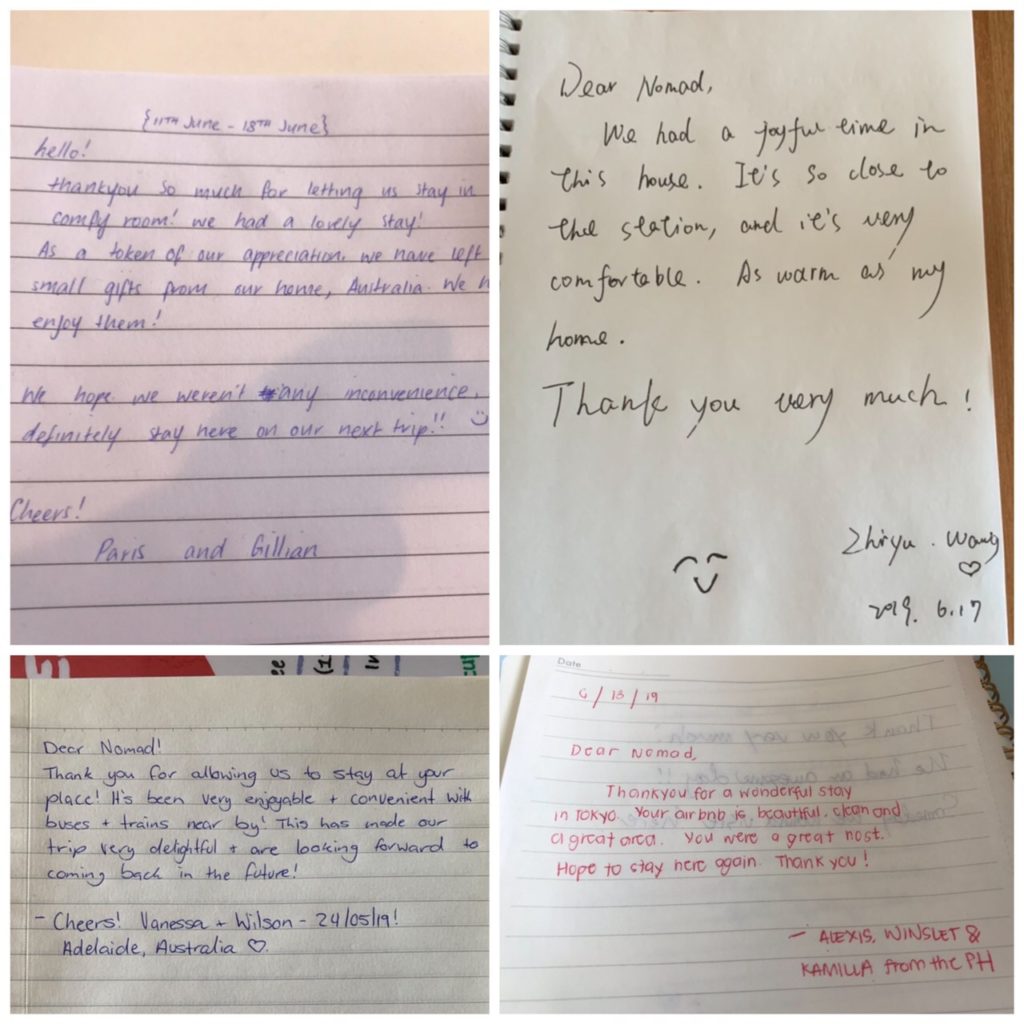 {11TH June - 18TH June}
hello!
thankyou so much for letting us stay in
comfy room! we had a lovely stay!
As a token of our appreciation, we have left
small gifts from our home, Australia. We h
enjoy them!
We hope we weren't any inconvenience,
definitely stay here on our next trip!!
Cheers!
Paris and Gillian
Dear Nomad,
We had a joyful time in
this house. It's so close to
the station, and it's very
comfortable. As warm as my
home.
Thank you very much!
Zhiyu. Wang
2019. 6.17
Dear Nomad!
Thank you for allowing us to stay at your
place! It's been very enjoyable + convenient with
buses + trains near by! This has made our
trip very delightful + are looking forward to
coming back in the future!
- Cheers! Vanessa + Wilson - 24/05/19!
Adelaide, Australia ♡.
Date
6/13/19
Dear Nomad,
Thankyou for a wonderful stay
in TOKYO. Your airbnb is beautiful, clean and
a great area. You were a great host.
Hope to stay here again. Thank you!
- ALEXIS, WINSLET &
KAMILLA from the PH